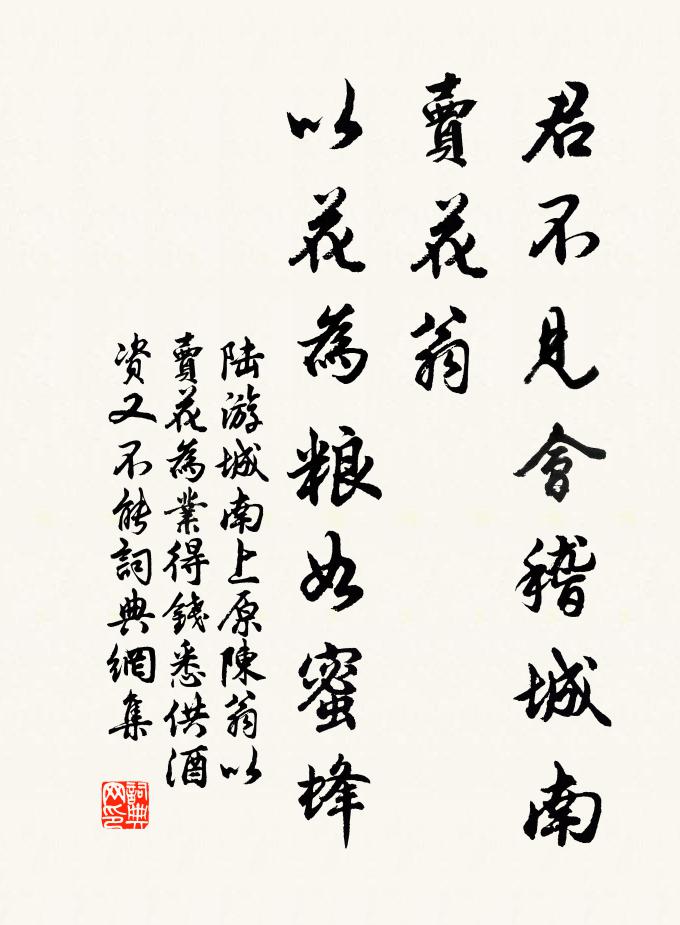 君不見會稽城南
賣花翁
以花為粮如蜜蜂
陆游城南上原陳翁以
賣花為業得錢悉供酒
资又不能詞典網集
詞典
网印